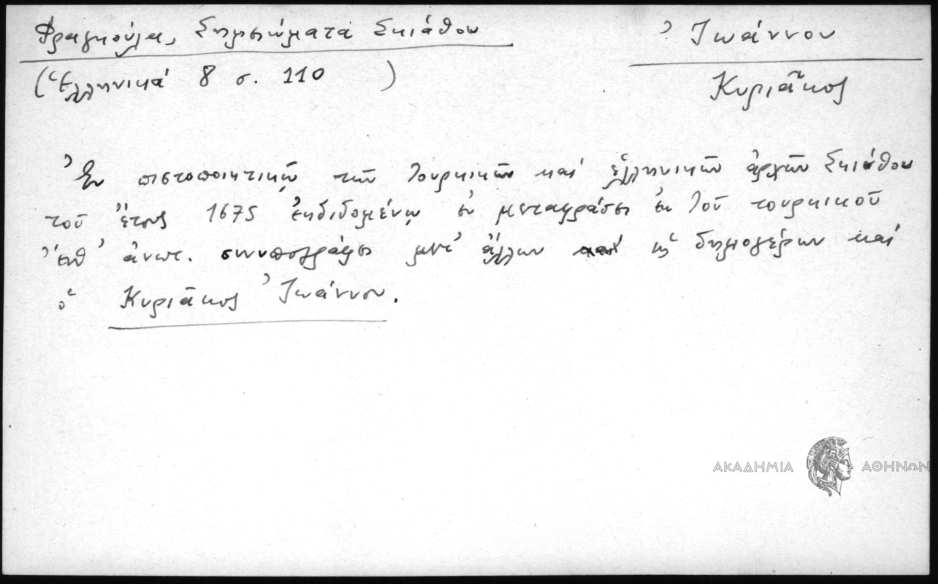 Φραγκούλα, Σημειώματα Σκιάθου
(Ἑλληνικά 8 σ. 110 )
Ἰωάννου
Κυριᾶκος
Ἐν πιστοποιητικῷ τῶν Τουρκικῶν καί ἑλληνικῶν ἀρχῶν Σκιάθου
τοῦ ἔτους 1675 ἐκδιδομένῳ ἐν μεταφράσει ἐκ τοῦ τουρκικοῦ
ἔνθ' ἀνωτ. συνυπογράφει μετ' ἄλλων ὡς δημογέρων καί
ὁ Κυριᾶκος Ἰωάννου.
ΑΚΑΔΗΜΙΑ ΑΘΗΝΩΝ